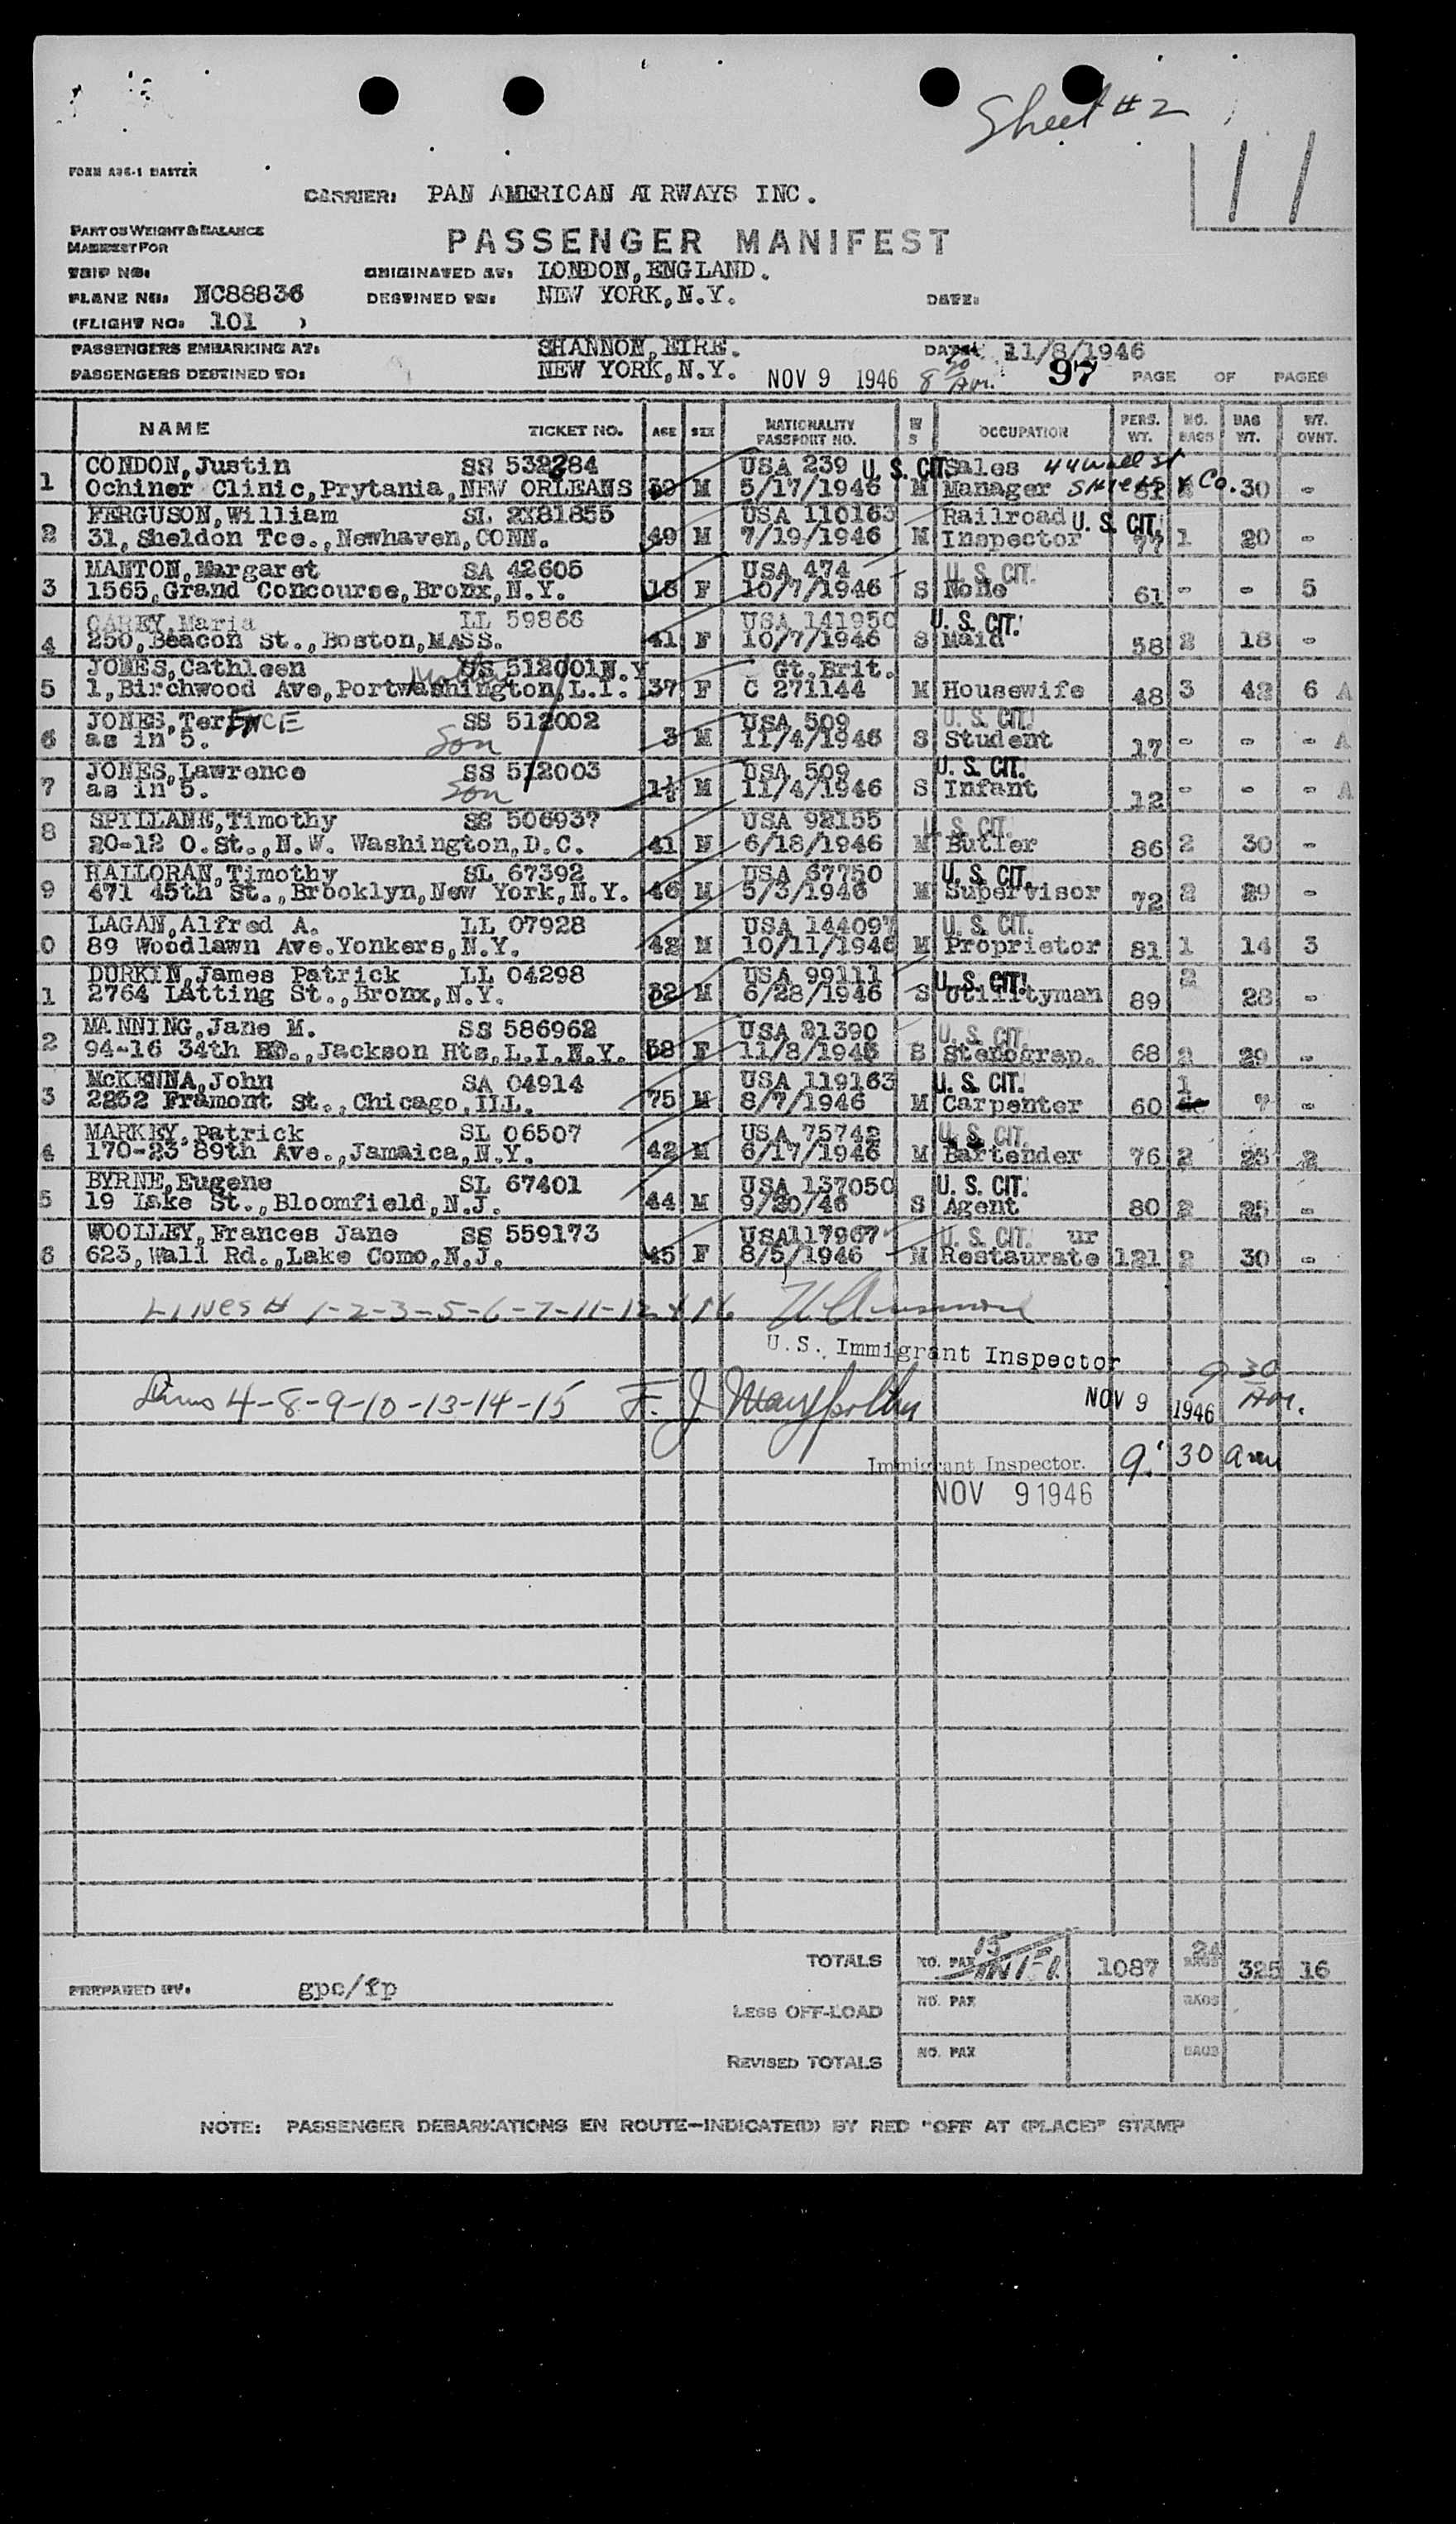 Sheet #2
11
FORM A96-1 MASTER
CARRIER: PAN AMERICAN AIRWAYS INC.
PART OF WEIGHT & BALANCE
MANIFEST FOR
PASSENGER MANIFEST
TRIP NO: ORIGINATED AT: LONDON, ENGLAND.
PLANE NO: NC88836 DESTINED TO: NEW YORK, N.Y. DATE:
(FLIGHT NO: 101 )
PASSENGERS EMBARKING AT: SHANNON, EIRE. DATE: 11/8/1946
PASSENGERS DESTINED TO: NEW YORK, N.Y. NOV 9 1946 97 PAGE OF PAGES
NAME TICKET NO. AGE SEX NATIONALITY PASSPORT NO. M S OCCUPATION PERS. WT. NO. BAGS BAG WT. WT. OVHT.
CONDON, Justin SS 532284 USA 239 U. S. CIT. Sales 44 Wall St
1 Ochiner Clinic, Prytania, NEW ORLEANS 39 M 5/17/1946 M Manager Shields & Co. 30 -
FERGUSON, William SL 2X81855 USA 110163 Railroad U. S. CIT.
2 31, Sheldon Tce., Newhaven, CONN. 49 M 7/19/1946 M Inspector 77 1 20 -
MANTON, Margaret SA 42605 USA 474 U. S. CIT.
3 1565, Grand Concourse, Bronx, N.Y. 18 F 10/7/1946 S None 61 - - 5
CAREY, Maria LL 59866 USA 141950 U. S. CIT.
4 250, Beacon St., Boston, MASS. 41 F 10/7/1946 S Maid 58 2 18 -
JONES, Cathleen Mother SS 512001 N.Y Gt. Brit.
5 1, Birchwood Ave, Portwashington, L.I. 37 F C 271144 M Housewife 48 3 42 6 A
JONES, TerENCE SS 512002 USA 509 U. S. CIT.
6 as in 5. Son 3 M 11/4/1946 S Student 17 - - - A
JONES, Lawrence SS 512003 USA 509 U. S. CIT.
7 as in 5. Son 1½ M 11/4/1946 S Infant 12 - - - A
SPILLANE, Timothy SS 506937 USA 92155 U. S. CIT.
8 20-12 O. St., N.W. Washington, D.C. 41 M 6/18/1946 M Butler 86 2 30 -
HALLORAN, Timothy SL 67392 USA 67750 U. S. CIT.
9 471 45th St., Brooklyn, New York, N.Y. 46 M 5/3/1946 M Supervisor 72 2 29 -
LAGAN, Alfred A. LL 07928 USA 144097 U. S. CIT.
0 89 Woodlawn Ave. Yonkers, N.Y. 42 M 10/11/1946 M Proprietor 81 1 14 3
DURKIN, James Patrick LL 04298 USA 99111 U. S. CIT.
1 2764 Latting St., Bronx, N.Y. 32 M 6/28/1946 S Utilityman 89 2 28 -
MANNING, Jane M. SS 586962 USA 21390 U. S. CIT.
2 94-16 34th RD., Jackson Hts, L.I. N.Y. 58 F 11/8/1946 S Stenograp. 68 2 29 -
McKENNA, John SA 04914 USA 119163 U. S. CIT.
3 2232 Framont St., Chicago, ILL. 75 M 8/7/1946 M Carpenter 60 1 7 -
MARKEY, Patrick SL 06507 USA 75742 U. S. CIT.
4 170-23 89th Ave., Jamaica, N.Y. 42 M 6/17/1946 M Bartender 76 2 23 2
BYRNE, Eugene SL 67401 USA 137050 U. S. CIT.
5 19 Lake St., Bloomfield, N.J. 44 M 9/20/46 S Agent 80 2 25 -
WOOLLEY, Frances Jane SS 559173 USA117967 U. S. CIT. ur
6 623, Wall Rd., Lake Como, N.J. 45 F 8/5/1946 M Restaurate 121 2 30 -
Lines # 1-2-3-5-6-7-11-12 & 16
U.S. Immigrant Inspector
9 30 Am.
Lines 4-8-9-10-13-14-15 F. J.
NOV 9 1946
Immigrant Inspector. 9:30 am
NOV 9 1946
TOTALS NO. PAX 15 INF-1 1087 24 BAGS 325 16
PREPARED BY: gpc/fp
LESS OFF-LOAD NO. PAX BAGS
REVISED TOTALS NO. PAX BAGS
NOTE: PASSENGER DEBARKATIONS EN ROUTE—INDICATE(D) BY RED "OFF AT (PLACE)" STAMP